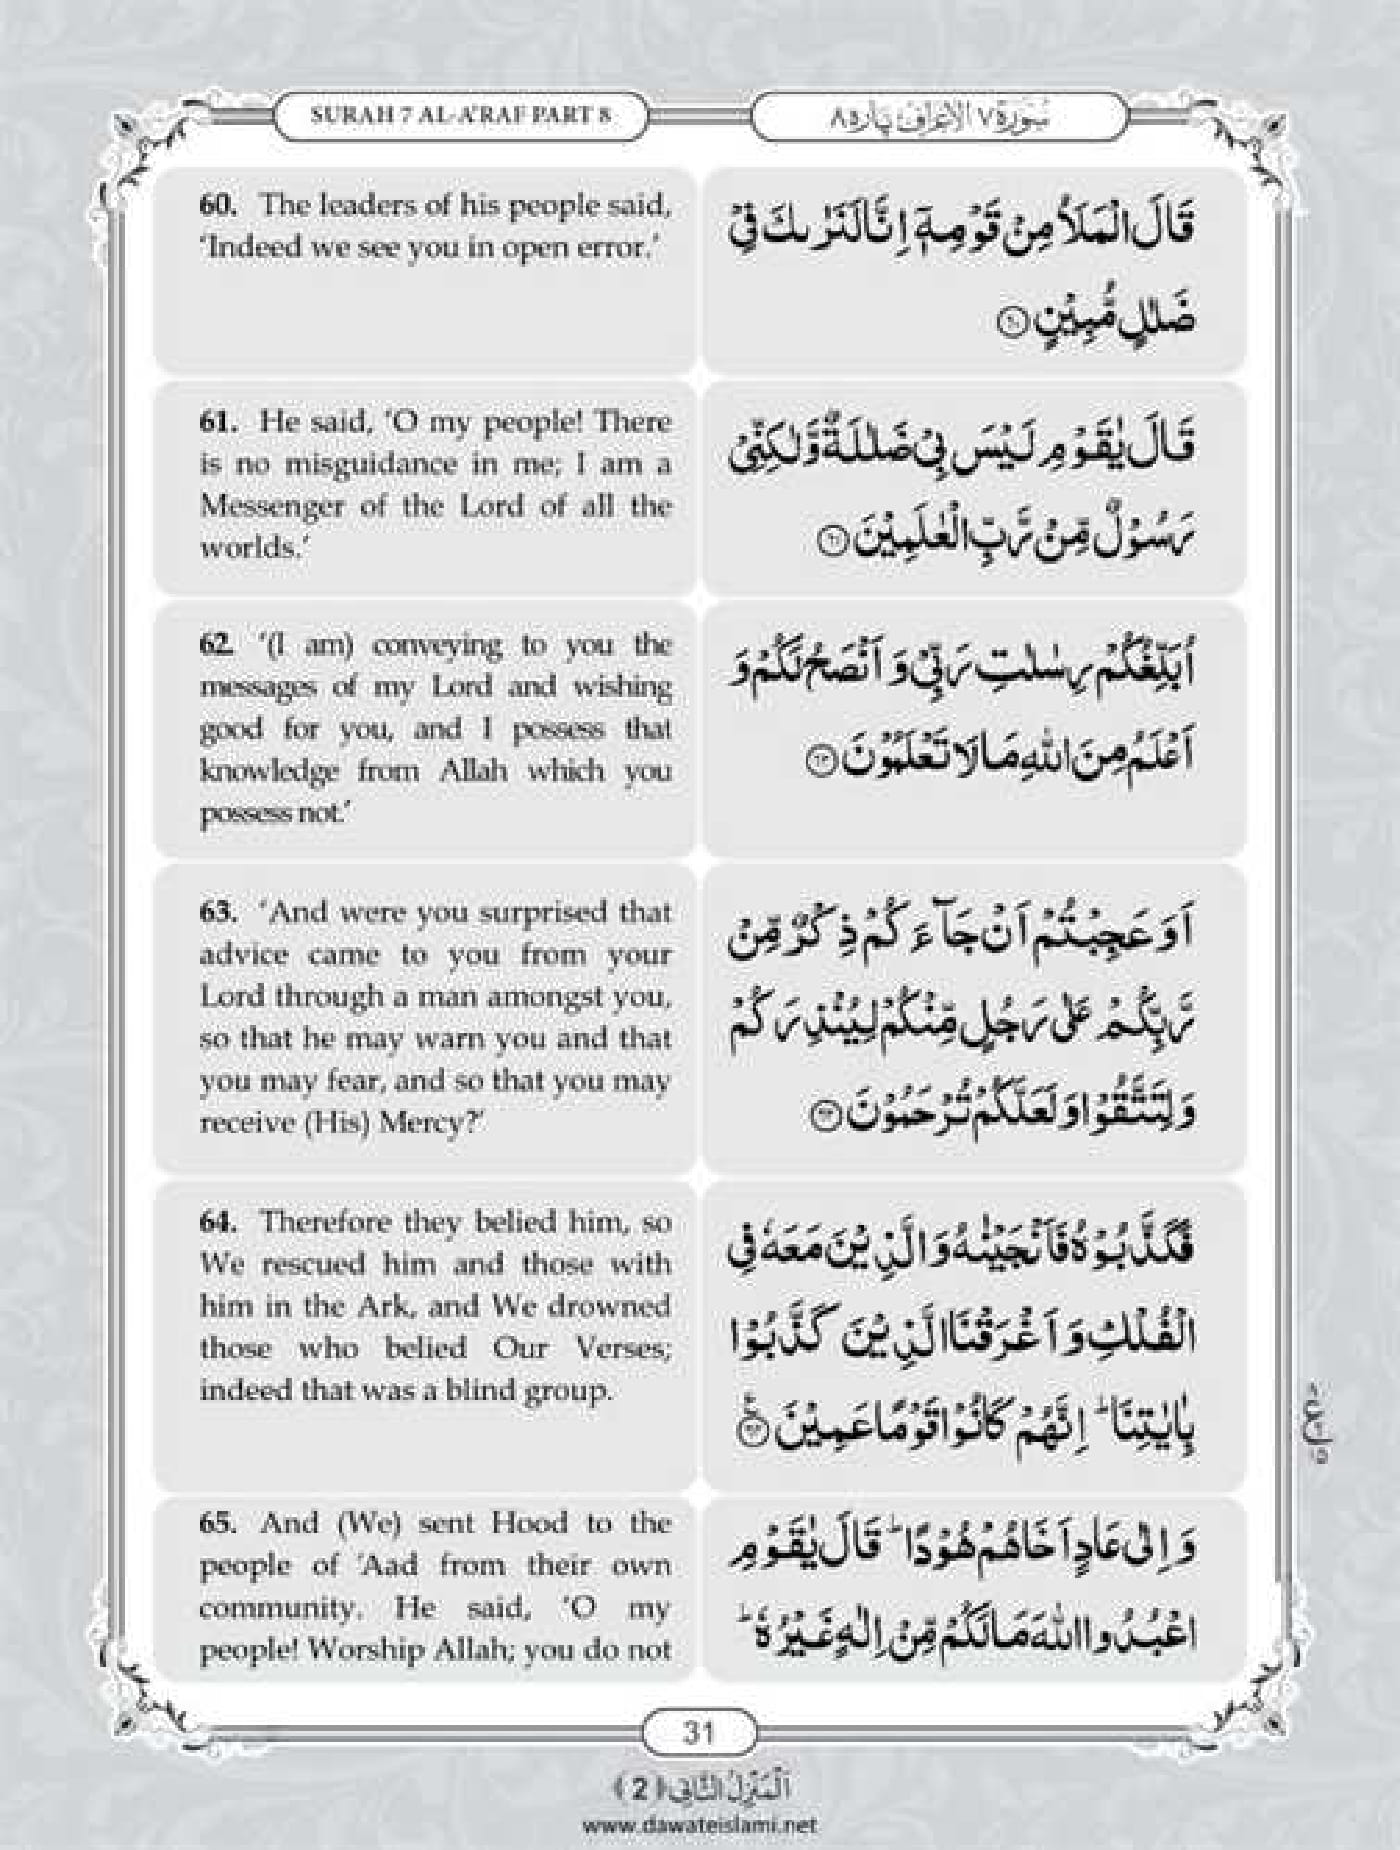 SURAH 7 AL-A'RAF PART 8
سُوْرَة ٧ الْاَعْرَاف پارہ ٨
60. The leaders of his people said,
‘Indeed we see you in open error.’
قَالَ الْمَلَاُ مِنْ قَوْمِهٖۤ اِنَّا لَنَرٰىكَ فِیْ
ضَلٰلٍ مُّبِیْنٍ ﴿۶۰﴾
61. He said, ‘O my people! There
is no misguidance in me; I am a
Messenger of the Lord of all the
worlds.’
قَالَ یٰقَوْمِ لَیْسَ بِیْ ضَلٰلَةٌ وَّ لٰكِنِّیْ
رَسُوْلٌ مِّنْ رَّبِّ الْعٰلَمِیْنَ ﴿۶۱﴾
62. ‘(I am) conveying to you the
messages of my Lord and wishing
good for you, and I possess that
knowledge from Allah which you
possess not.’
اُبَلِّغُكُمْ رِسٰلٰتِ رَبِّیْ وَ اَنْصَحُ لَكُمْ وَ
اَعْلَمُ مِنَ اللّٰهِ مَا لَا تَعْلَمُوْنَ ﴿۶۲﴾
63. ‘And were you surprised that
advice came to you from your
Lord through a man amongst you,
so that he may warn you and that
you may fear, and so that you may
receive (His) Mercy?’
اَوَ عَجِبْتُمْ اَنْ جَآءَكُمْ ذِكْرٌ مِّنْ
رَّبِّكُمْ عَلٰى رَجُلٍ مِّنْكُمْ لِیُنْذِرَكُمْ
وَ لِتَتَّقُوْا وَ لَعَلَّكُمْ تُرْحَمُوْنَ ﴿۶۳﴾
64. Therefore they belied him, so
We rescued him and those with
him in the Ark, and We drowned
those who belied Our Verses;
indeed that was a blind group.
فَكَذَّبُوْهُ فَاَنْجَیْنٰهُ وَ الَّذِیْنَ مَعَهٗ فِی
الْفُلْكِ وَ اَغْرَقْنَا الَّذِیْنَ كَذَّبُوْا
بِاٰیٰتِنَاؕ اِنَّهُمْ كَانُوْا قَوْمًا عَمِیْنَ ﴿۶۴﴾
65. And (We) sent Hood to the
people of ‘Aad from their own
community. He said, ‘O my
people! Worship Allah; you do not
وَ اِلٰى عَادٍ اَخَاهُمْ هُوْدًاؕ قَالَ یٰقَوْمِ
اعْبُدُوا اللّٰهَ مَا لَكُمْ مِّنْ اِلٰهٍ غَیْرُهٗؕ
31
اَلْمَنْزِلُ الثَّانِی ﴿2﴾
www.dawateislami.net